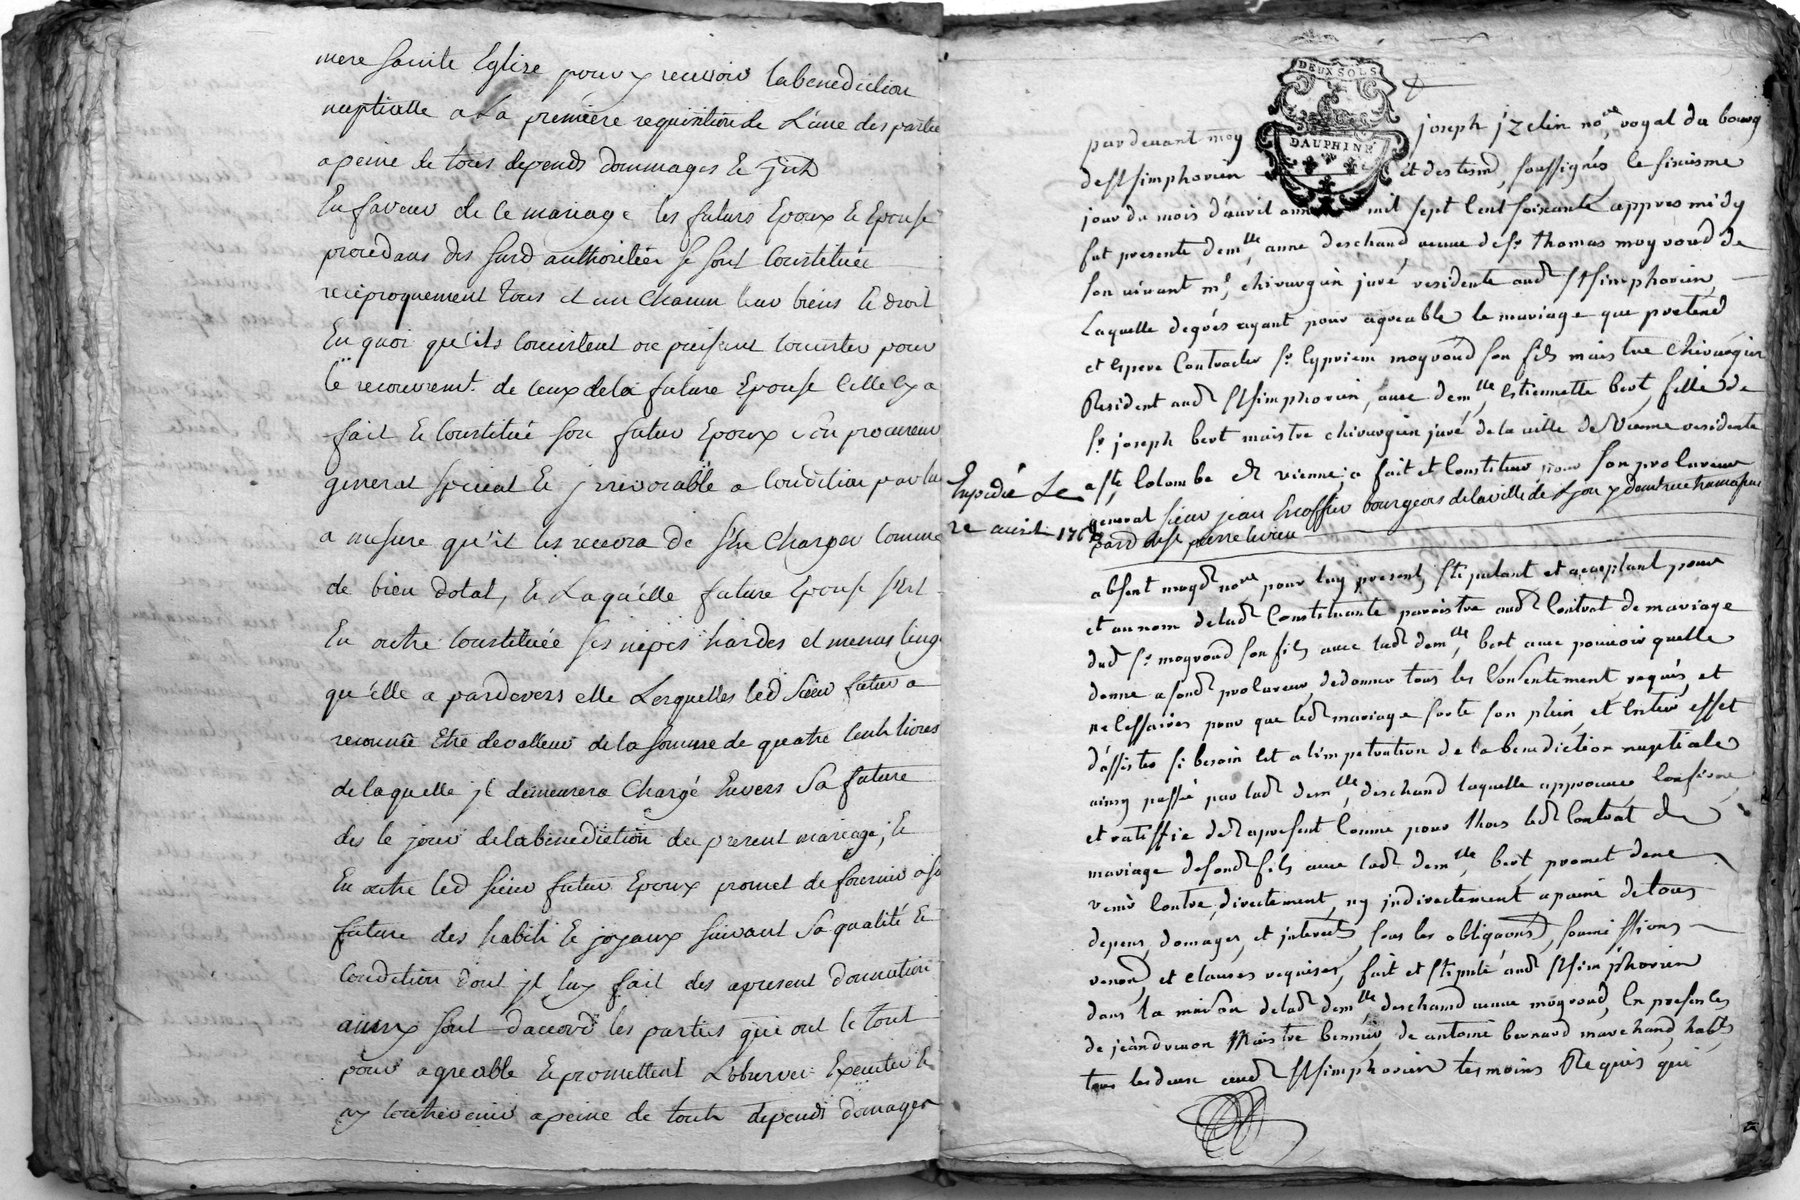 mere sainte Eglise pour y recevoir la benediction
nuptialle a La premiere requisition de L'une des parties
a peine de tous depends dommages Et jnts
En faveur de ce mariage les futurs Epoux Et Epouse
procedans des susd authorités se sont Constitués
reciproquement tous et un Chacun leur biens Et droit
En quoi qu'ils Consistent ou puissent Consister pour
le recouvremt. de ceux de la future Epouse Celle cy a
fait Et Constitué son futur Epoux son procureur
general special Et jrrevocable a Condition par luy
a mesure qu'il les recevra de s'En Charger Comme
de bien dotal, Et Laquelle future Epouse s'Est
En outre Constituée ses nipes hardes et menus linge
qu'elle a pardevers elle Lesquelles led Sieur futur a
reconnüe Etre de valleur de la somme de quatre Cents livres
de laquelle jl demeurera Chargé Envers Sa future
des le jour de la benediction du present mariage; Et
En outre led sieur futur Epoux promet de fournir a sa
future des habits Et joyaux suivant Sa qualité Et
Condition dont jl luy fait des apresent donnation
ainsy sont d'accord les parties qui ont le tout
pour agreable Et promettent L'observer Executer Et
ny Contrevenir a peine de touts depends domages
DEUX SOLS
DAUPHINE
par devant moy joseph jzelin nore, royal du bourg
de St simphorien et des tesm, soussignés le sixiesme
jour du mois d'auril mil sept Cent soixante appres midy
fut presente demlle, anne deschand veuve de Sr thomas mogrond de
son vivant me, chirurgien juré residente aud St simphorien,
Laquelle degrés ayant pour agreable le mariage que pretend
et espere Contracter Sr Cyprien mogrond son fils maistre chirurgien
Resident aud St simphorien, avec demlle Estiennette bert, fille de
Sr joseph bert maistre chirurgien juré de la ville de Vienne residente
a Ste Colombe les vienne; a fait et Constitue pour son procureur
general sieur jean Escoffier bourgeois de la ville de Lyon y demt rue
pard St pierre
Expedié Le
22 auril 1760
absent moyd nore pour luy present, stipulant et acceptant pour
et au nom de lad Constituante paroistre aud Contrat de mariage
dud Sr mogrond son fils avec lad demlle, bert, avec pouvoir quelle
donne a sond procureur de donner tous les Consentement requis, et
necessaires pour que led mariage sorte son plein, et Entier effet
d'assister si besoin est a l'impetration de la benediction nuptiale
ainsy passé par lad demlle, deschand laquelle approuve Confirme
et ratiffie des apresent Comme pour Lhors led Contrat de
mariage de sond fils avec lad demlle, bert, promet de ne
venir Contre, directement, ny indirectement a peine de tous
depens, domages, et interets, sous les obligaons, soumissions
renons, et clauses requises, fait et stipulé aud St simphorien
dans la maison de lad demlle, deschand veuve mogrond, En presence
de jean Maistre de antoine bernard marchand, habts
tous les deux aud St simphorien tesmoins Requis qui